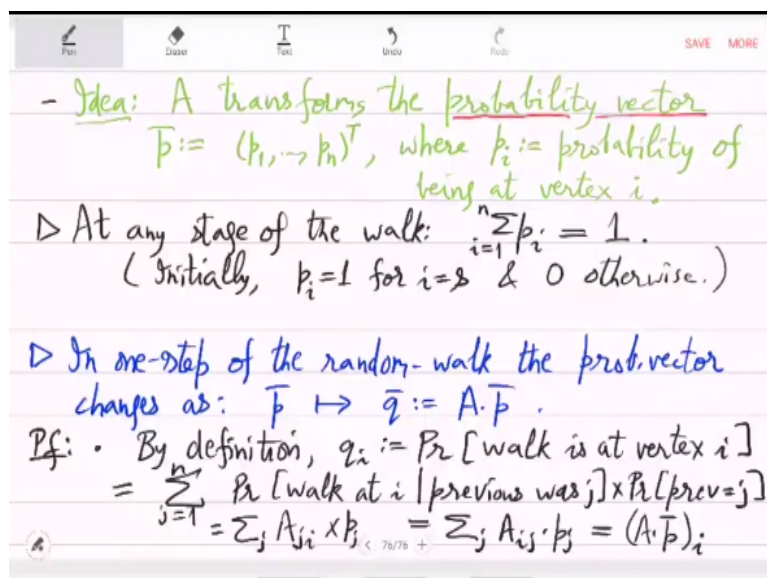 Pen Eraser Text Undo Redo SAVE MORE
- Idea: A transforms the probability vector
p̄ := (p₁,..., pₙ)ᵀ, where pᵢ := probability of
being at vertex i.
▷ At any stage of the walk: ⁿΣᵢ₌₁ pᵢ = 1.
(Initially, pᵢ=1 for i=s & 0 otherwise.)
▷ In one-step of the random-walk the prob. vector
changes as: p̄ ↦ q̄ := A·p̄.
Pf: · By definition, qᵢ := Pr[walk is at vertex i]
= ⁿΣⱼ₌₁ Pr[walk at i | previous was j]×Pr[prev=j]
= Σⱼ Aⱼᵢ × pⱼ = Σⱼ Aᵢⱼ·pⱼ = (A·p̄)ᵢ
< 76/76 +